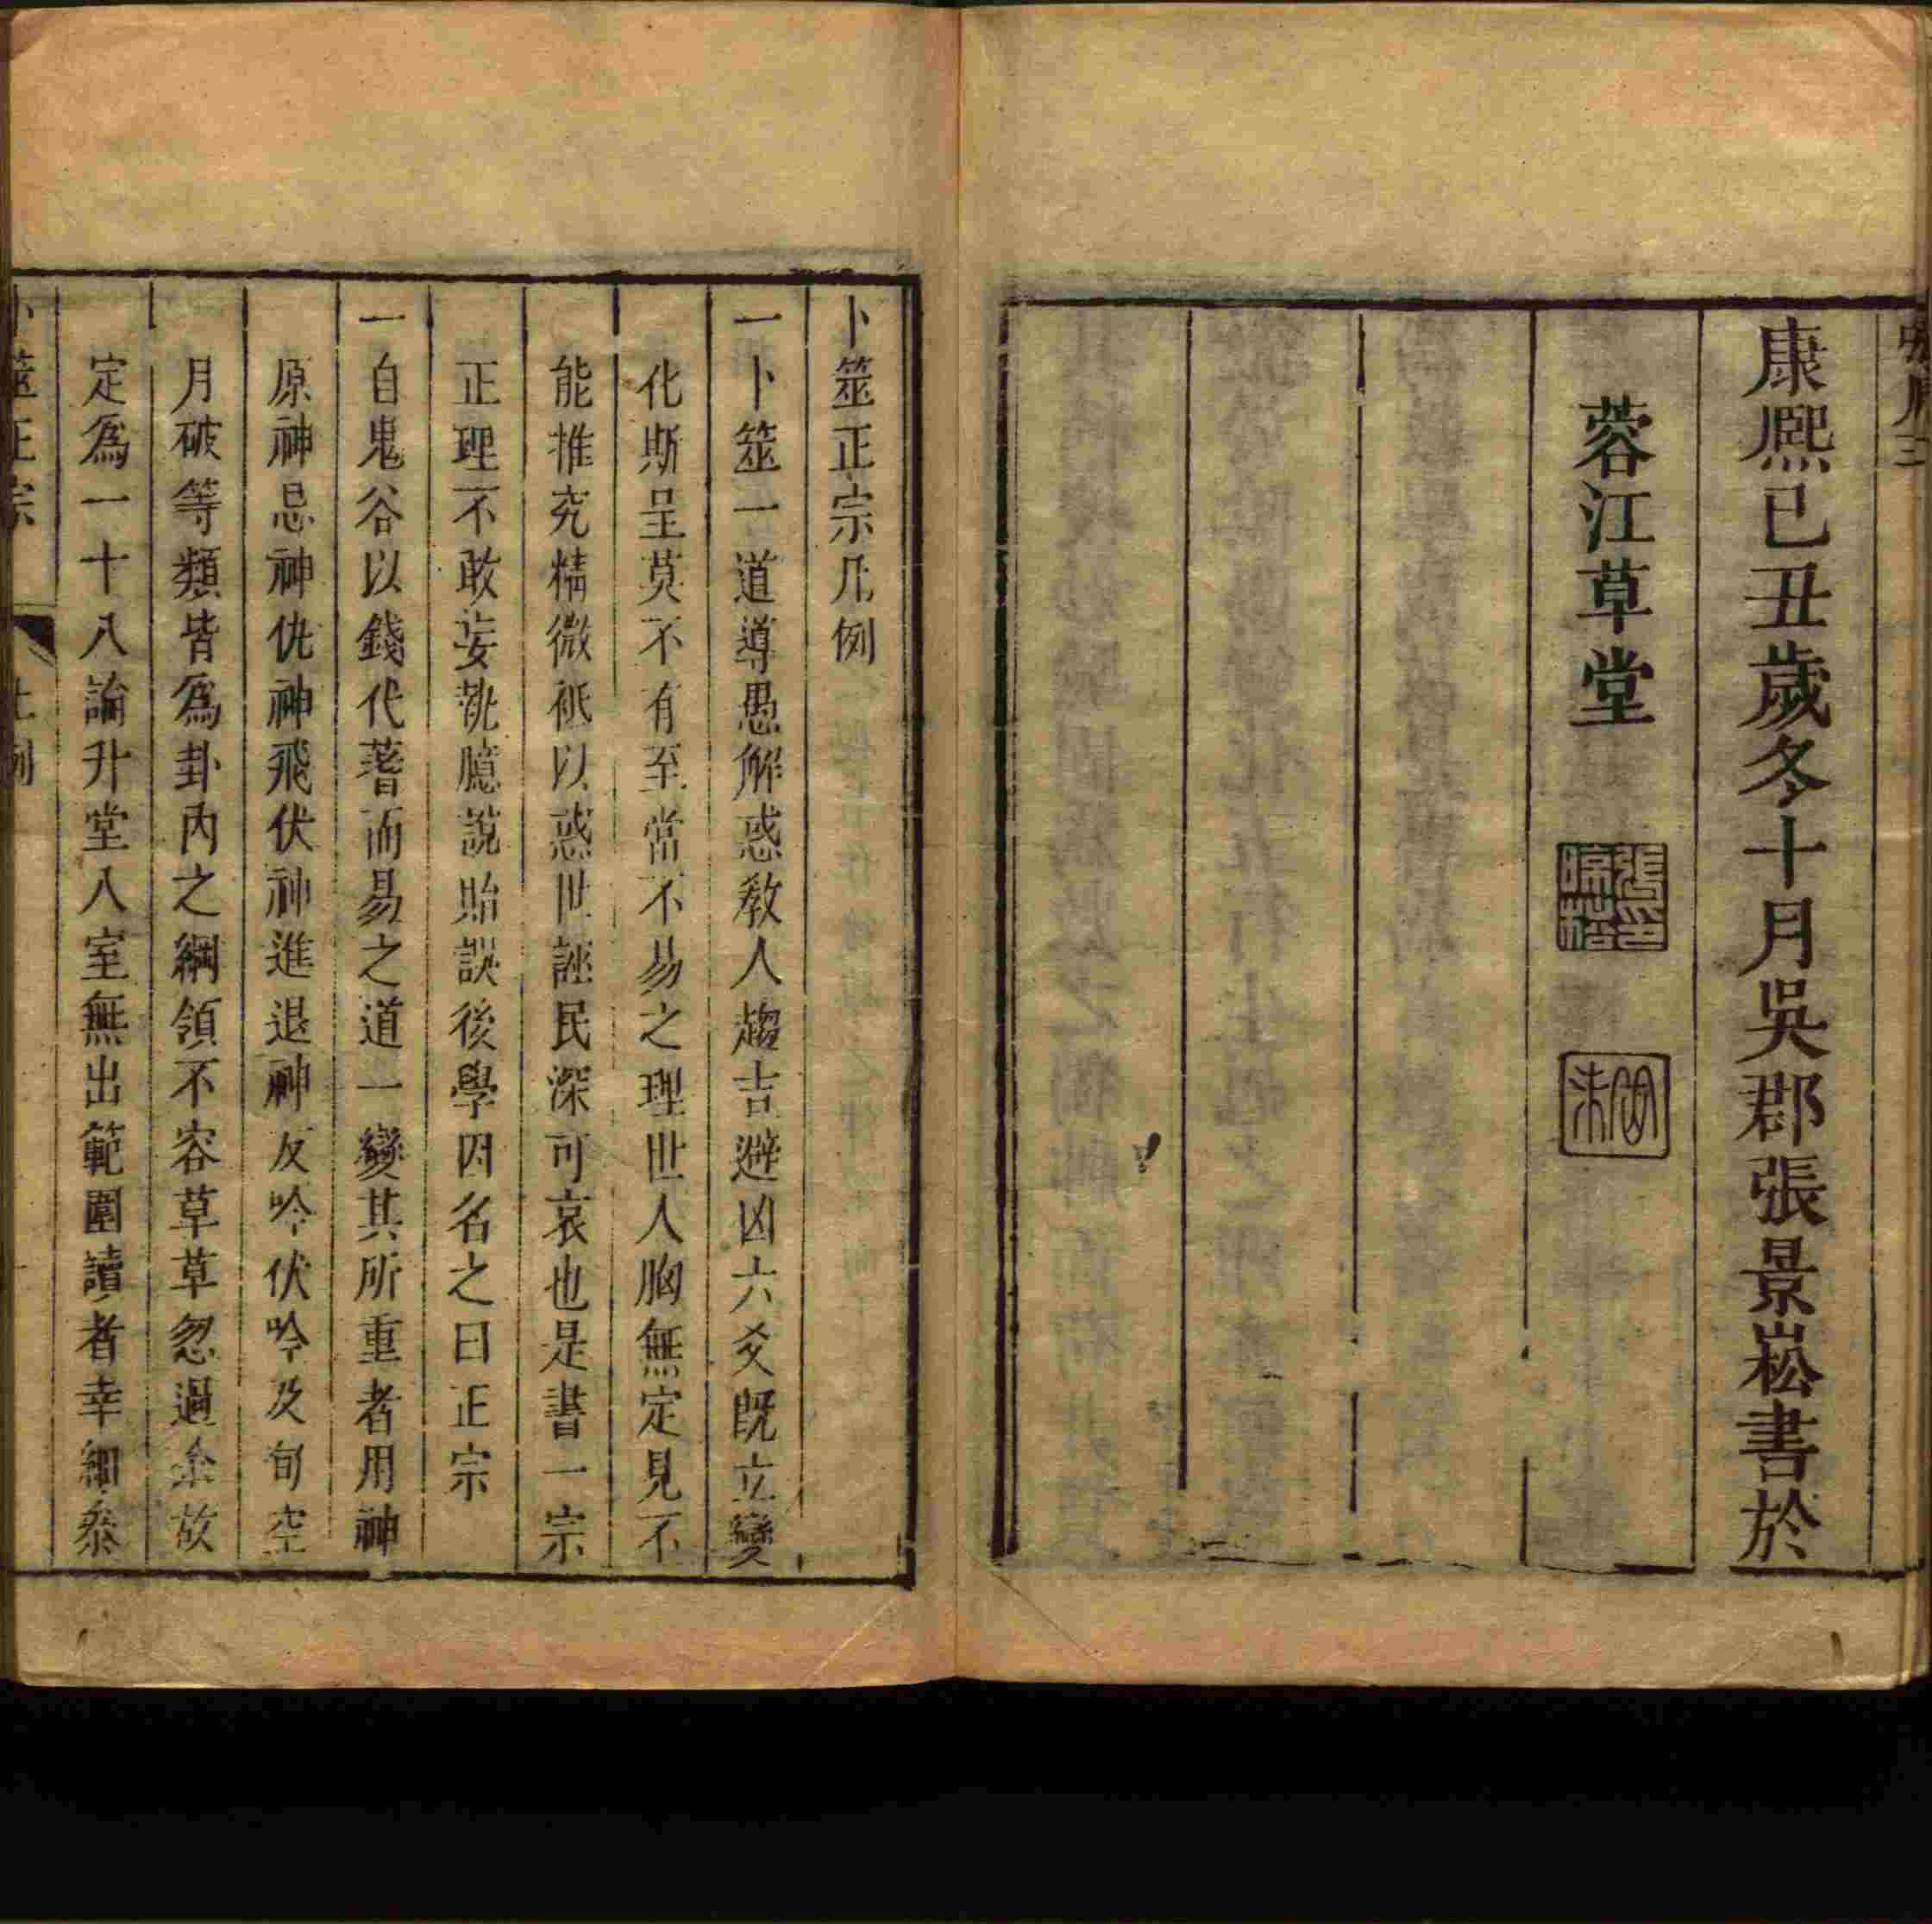 康熙己丑歲冬十月吳郡張景崧書於
蓉江草堂
卜筮正宗凡例
一卜筮一道導愚解惑教人趨吉避凶六爻既立變
化斯呈莫不有至當不易之理世人胸無定見不
能推究精微秪以惑世誣民深可哀也是書一宗
正理不敢妄執臆說貽誤後學因名之曰正宗
一自鬼谷以錢代蓍而易之道一變其所重者用神
原神忌神仇神飛伏神進退神反吟伏吟及旬空
月破等類皆爲卦內之綱領不容草草忽過余故
定爲一十八論升堂入室無出範圍讀者幸細叅
卜筮正宗
凡例